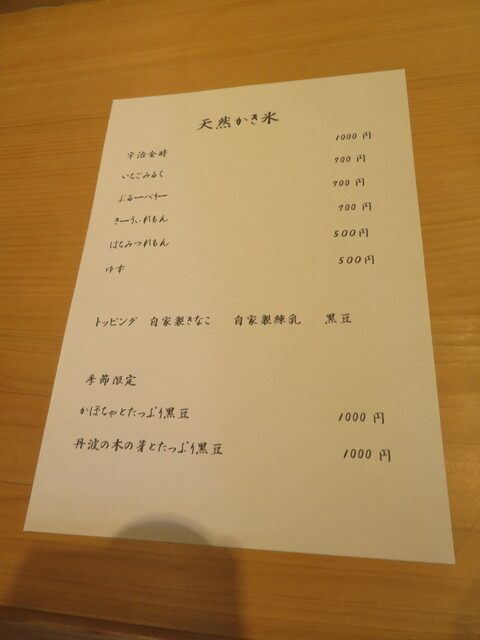 天然かき氷
宇治金時 1000円
いちごみるく 700円
ぶるーべりー 700円
きーうぃれもん 700円
はちみつれもん 500円
ゆず 500円
トッピング 自家製きなこ 自家製練乳 黒豆
季節限定
かぼちゃとたっぷり黒豆 1000円
丹波の木の芽とたっぷり黒豆 1000円